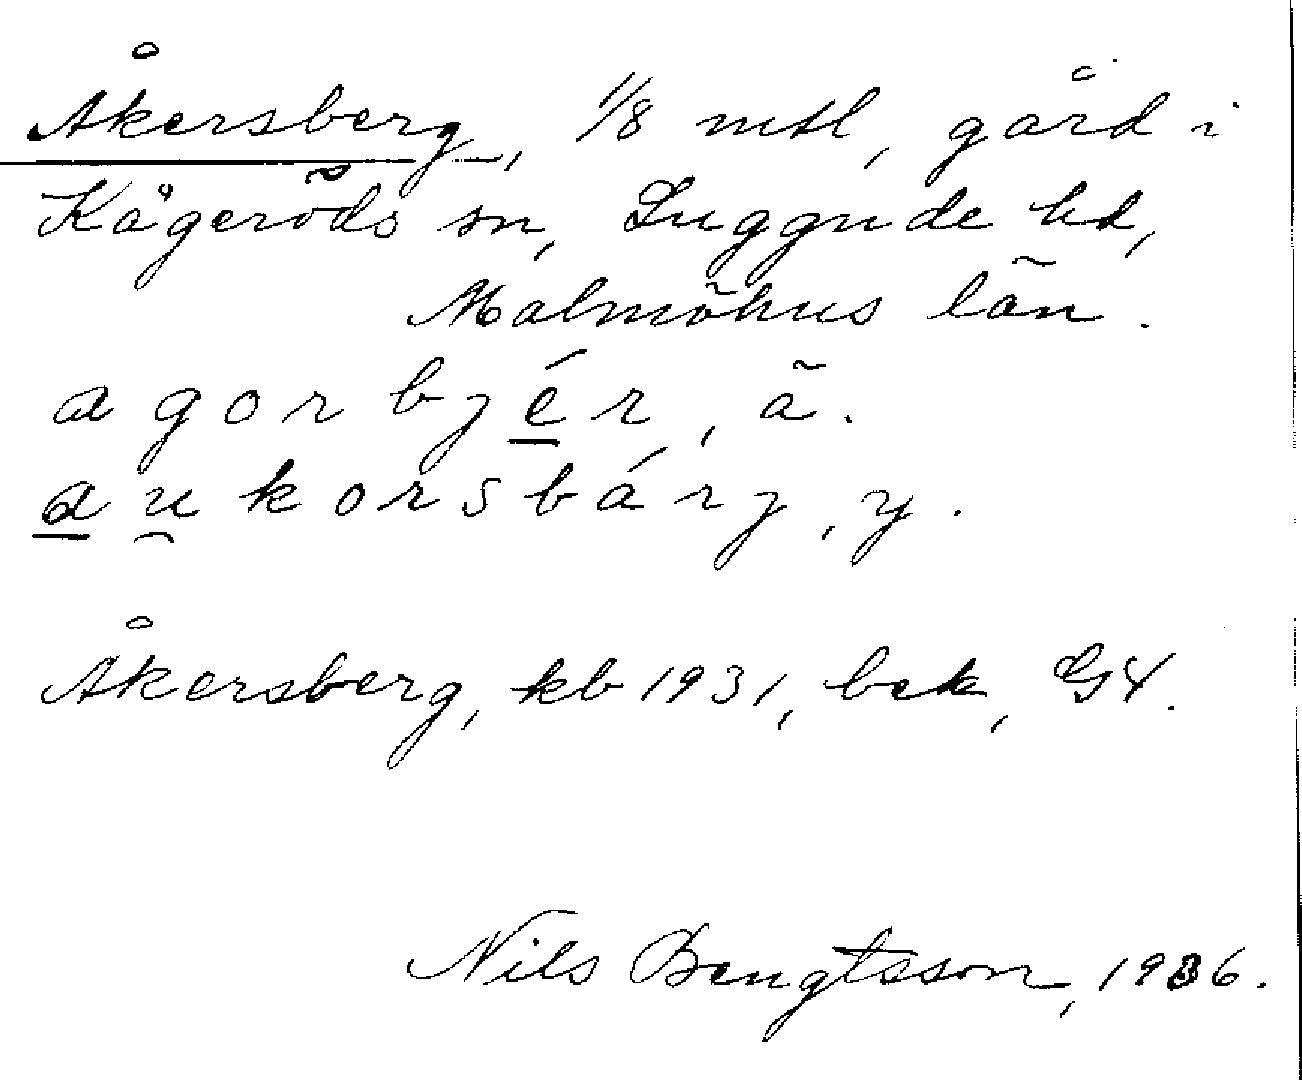 Åkersberg, 1/8 mtl, gård i
Kågeröds sn, Luggude hd,
Malmöhus län.
agorbjér, ä.
aukorsbárj, y.
Åkersberg, kb 1931, bek, G4.
Nils Bengtsson, 1936.